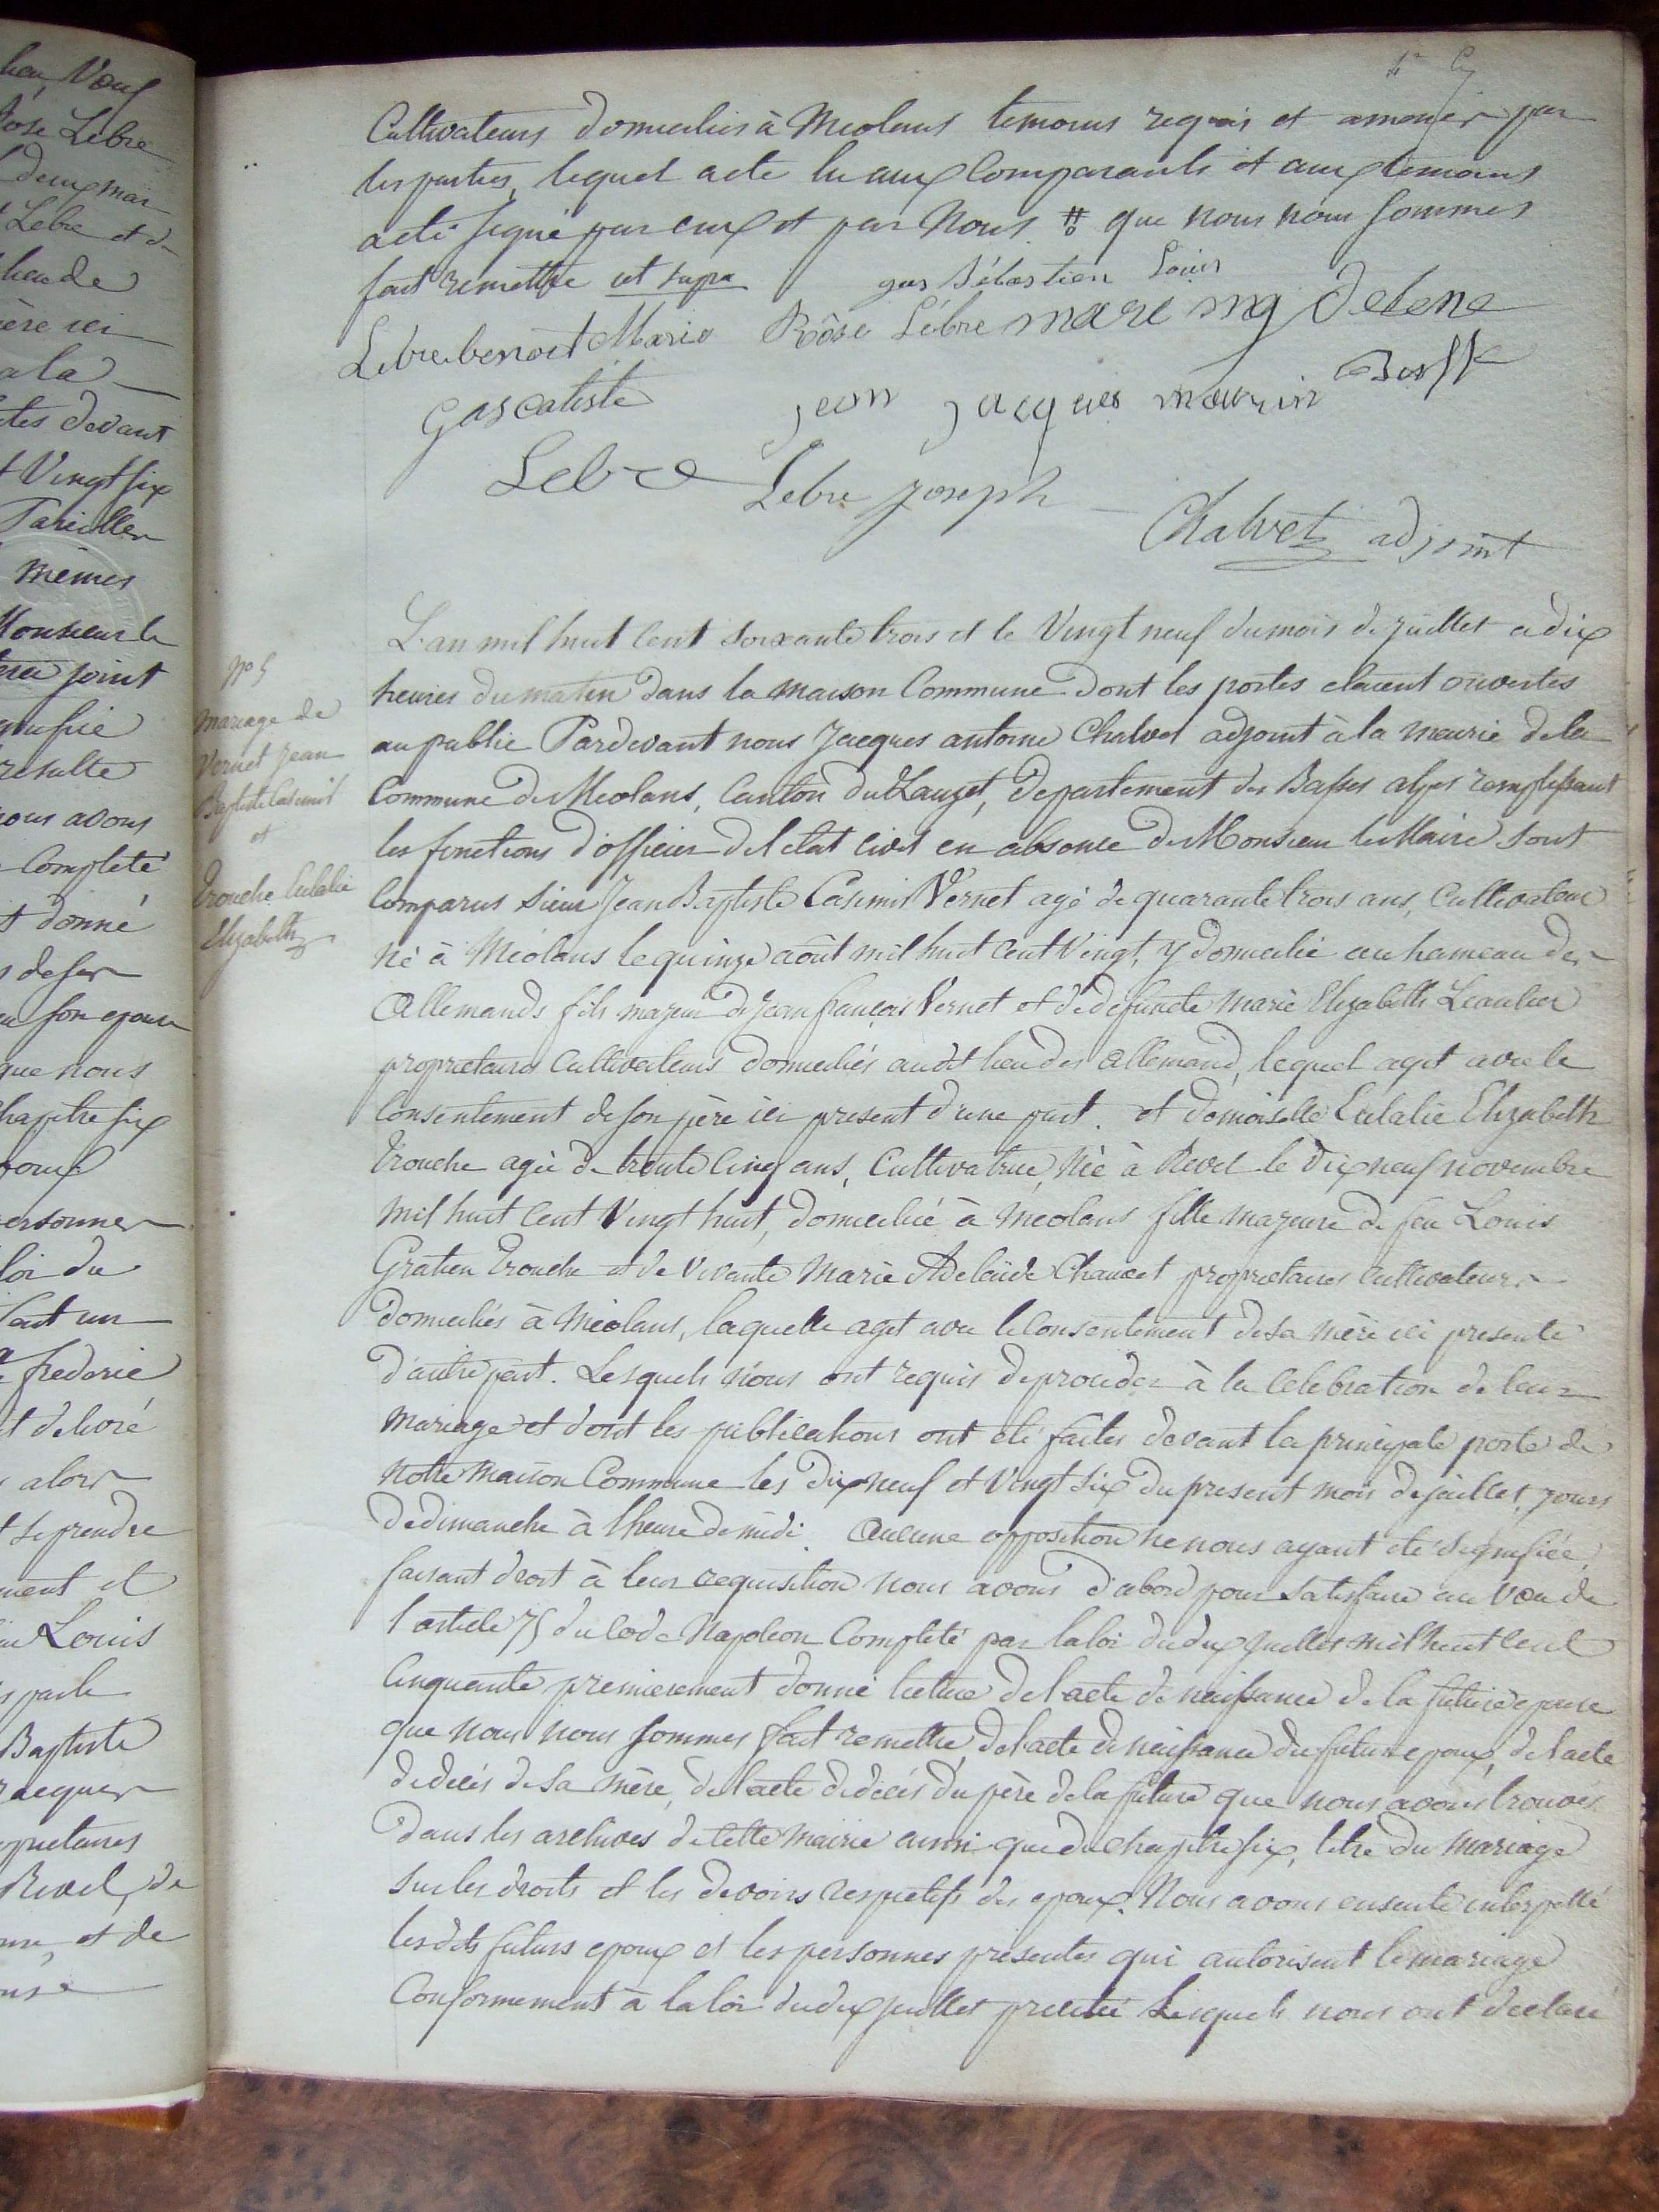 Cultivateurs domiciliés à Meolans temoins requis et amenés par
les parties, lequel acte lu aux Comparants et aux temoins
acté signé par eux et par Nous. # que nous nous sommes
fait remettre ut supra
gas Sébastien Louis
Lebre benoit Marie Rôse Lébre marc
gas batiste jean jacques maurin
Lebre Lebre joseph
Chalvet adjoint
N° 5
Mariage de
Vernet Jean
Baptiste Casimir
et
Trouche Eulalie
Elizabeth
L'an mil huit cent soixante trois et le Vingt neuf du mois de juillet a dix
heures du matin dans la maison Commune dont les portes etaient ouvertes
au public Pardevant nous Jacques antoine Chalvet adjoint à la mairie de la
Commune de Meolans, Canton du Lauzet, departement des Basses alpes remplissant
les fonctions d'officier de l'etat civil en absence de Monsieur le Maire sont
Comparus sieur Jean Baptiste Casimir Vernet agé de quarante trois ans, Cultivateur
né à Méolans le quinze août mil huit cent Vingt, y domicilié au hameau des
Allemands fils majeur de Jean françois Vernet et de defuncte Marie Elizabeth Leautier
proprietaires Cultivateurs domiciliés audit lieu des Allemand, lequel agit avec le
Consentement de son père ici present d'une part. et demoiselle Eulalie Elizabeth
Trouche agée de trente cinq ans, Cultivatrice, Née à Revel le dix neuf novembre
mil huit cent Vingt huit, domiciliée à Meolans fille majeure de feu Louis
Gratien Trouche et de vivante Marie Adelaïde Chauvet proprietaires cultivateurs
domiciliés à Méolans, laquelle agit avec le Consentement de sa mère ici presente
d'autre part. Lesquels nous ont requis de proceder à la Celebration de leur
mariage et dont les publications ont été faites devant la principale porte de
notre maison Commune les dix neuf et Vingt six du present mois de juillet, jours
de dimanche à l'heure de midi. Aucune opposition ne nous ayant été signifiée,
faisant droit à leur requisition nous avons d'abord pour satisfaire au vœu de
l'article 75 du Code Napoleon Completé par la loi du dix juillet mil huit cent
Cinquante premierement donné lecture de l'acte de naissance de la future epouse
que nous nous sommes fait remettre, de l'acte de naissance du futur epoux, de l'acte
de decés de sa mère, de l'acte de decés du père de la future que nous avons trouvés
dans les archives de cette mairie ainsi que du chapitre six, titre du Mariage
sur les droits et les devoirs respectifs des epoux. Nous avons ensuite interpellé
lesdits futurs epoux et les personnes présentes qui autorisent le mariage
Conformement à la loi du dix juillet precitée lesquels nous ont declaré